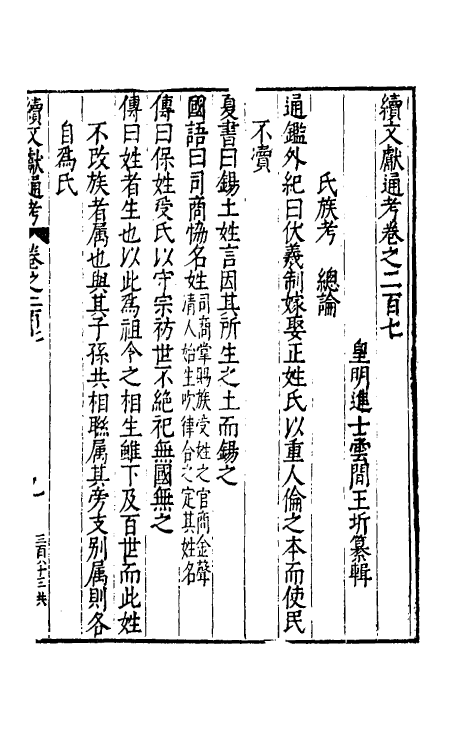 續文獻通考卷之二百七
皇明進士雲間王圻纂輯
氏族考　總論
通鑑外紀曰伏羲制嫁娶正姓氏以重人倫之本而使民
不瀆
夏書曰錫土姓言因其所生之土而錫之
國語曰司商協名姓司商掌賜族受姓之官商金聲
清人始生吹律合之定其姓名
傳曰保姓受氏以守宗祊世不絕祀無國無之
傳曰姓者生也以此爲祖令之相生雖下及百世而此姓
不改族者属也與其子孫共相聯属其旁支别属則各
自爲氏
續文獻通考
卷之二百七
三百八十三